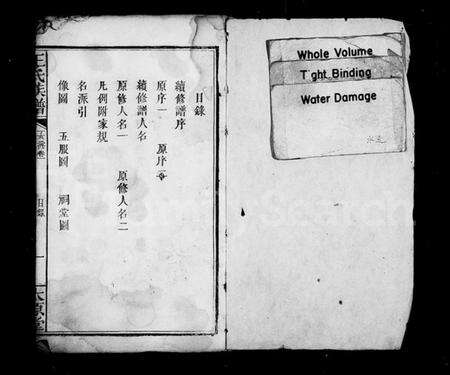 目錄
續修譜序
原序一 原序二
續修譜人名
原修人名一 原修人名二
凡例附家規
名派引
像圖 五服圖 祠堂圖
王氏族譜
目錄
一
太原堂
Whole Volume
Tight Binding
Water Damage
水迹